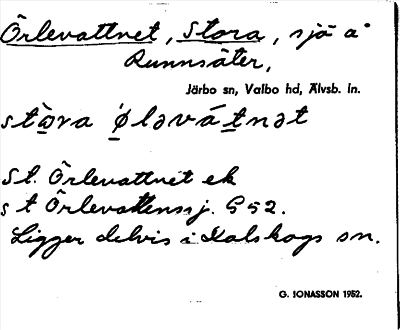 Örlevattnet, Stora, sjö å
Runnsäter,
Järbo sn, Valbo hd, Älvsb. ln.
stòra ǿləvátnət
St. Örlevattnet ek
st Örlevattens sj. G 52.
Ligger delvis i Dalskogs sn.
G. JONASSON 1952.